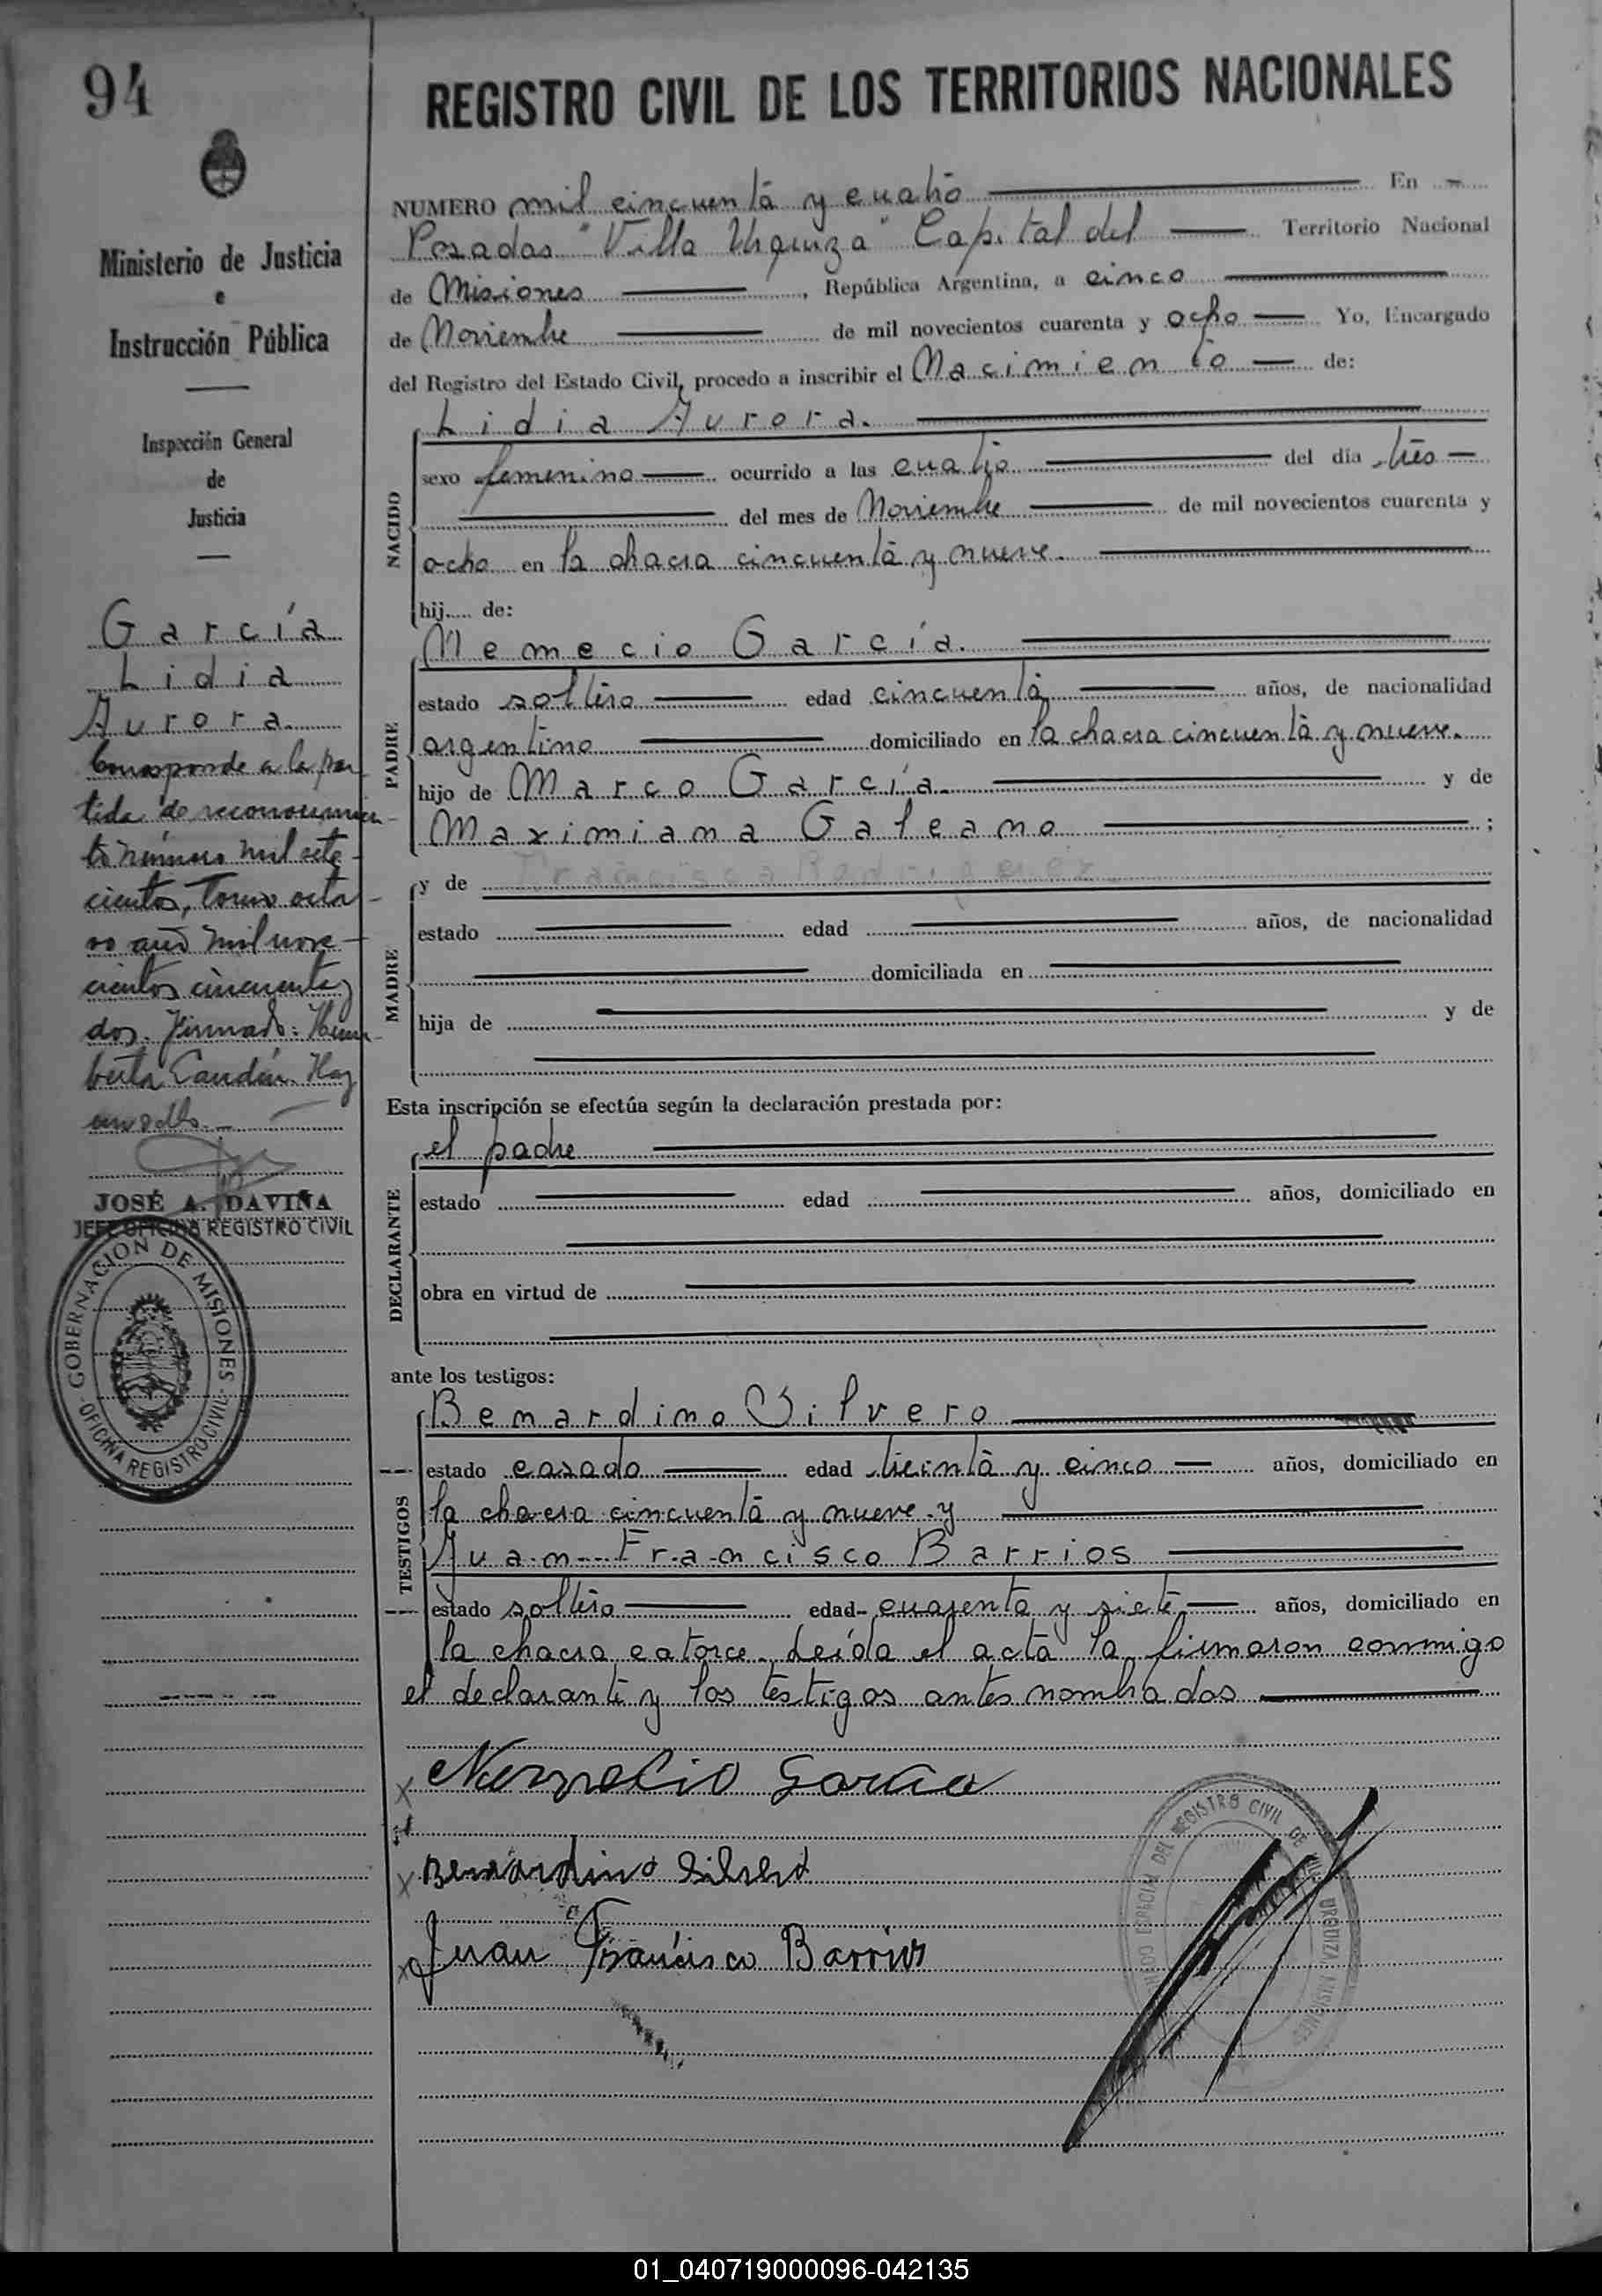 94
REGISTRO CIVIL DE LOS TERRITORIOS NACIONALES
Ministerio de Justicia
e
Instrucción Pública
Inspección General
de
Justicia
García
Lidia
Aurora.
Corresponde a la par-
tida de reconocimien-
to número mil sete-
cientos, Tomo octa-
vo año mil nove-
cientos cincuenta y
dos. Firmado: Hum-
berto Candia. Hay
un sello.-
JOSÉ A. DAVIÑA
JEFE OFICINA REGISTRO CIVIL
GOBERNACION DE MISIONES
OFICINA REGISTRO CIVIL
NUMERO mil cincuenta y cuatro En
Posadas "Villa Urquiza" Capital del Territorio Nacional
de Misiones, República Argentina, a cinco
de Noviembre de mil novecientos cuarenta y ocho Yo, Encargado
del Registro del Estado Civil, procedo a inscribir el Nacimiento de:
Lidia Aurora.
NACIDO
sexo femenino ocurrido a las cuatro del día tres
del mes de Noviembre de mil novecientos cuarenta y
ocho en la chacra cincuenta y nueve.
hij..... de:
Nemecio García.
PADRE
estado soltero edad cincuenta años, de nacionalidad
argentino domiciliado en la chacra cincuenta y nueve.
hijo de Marco García. y de
Maximiana Galeano ;
MADRE
y de Francisca Rodriguez
estado edad años, de nacionalidad
domiciliada en
hija de y de
Esta inscripción se efectúa según la declaración prestada por:
el padre
DECLARANTE
estado edad años, domiciliado en
obra en virtud de
ante los testigos:
Benardino Silvero
TESTIGOS
estado casado edad treinta y cinco años, domiciliado en
la chacra cincuenta y nueve y
Juan Francisco Barrios
estado soltero edad cuarenta y siete años, domiciliado en
la chacra catorce. Leída el acta la firmaron conmigo
el declarante y los testigos antes nombrados
Nemecio Garcia
Benardino Silvero
Juan Francisco Barrios
REGISTRO CIVIL DE VILLA URQUIZA MISIONES
01_040719000096-042135